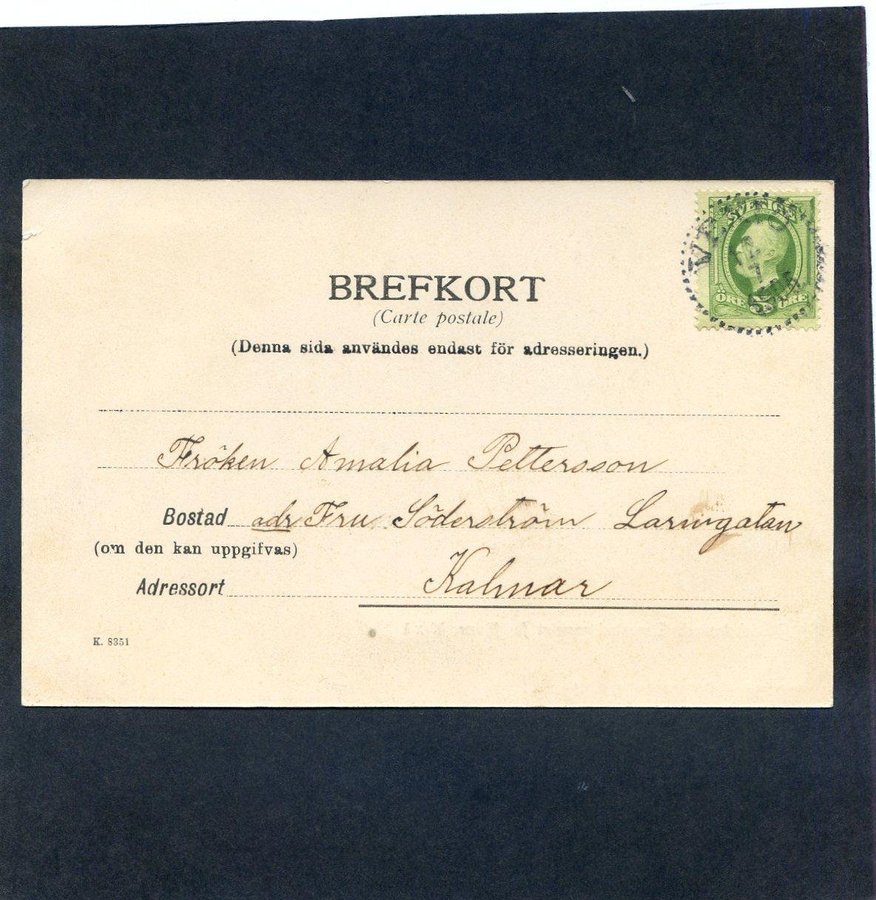 SVERIGE
ÖRE 5 ÖRE
BREFKORT
(Carte postale)
(Denna sida användes endast för adresseringen.)
Fröken Amalia Pettersson
Bostad adr Fru Söderström Larmgatan
(om den kan uppgifvas)
Adressort Kalmar
K. 8351